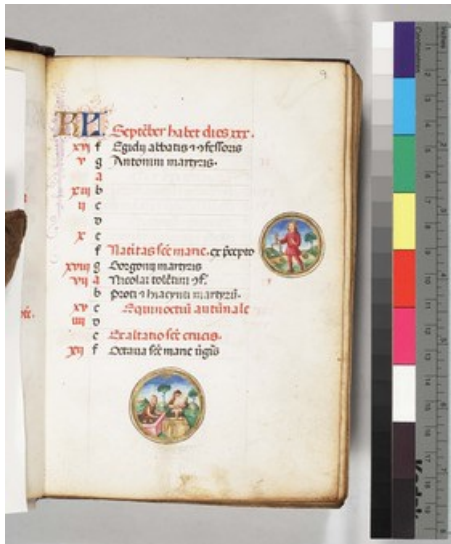 9
KL Septēber habet dies xxx.
xvi f Egidij abbatis ⁊ ꝯfessoris
v g Antonini martyris.
A
xiii b
ii c
D
x e
f Natiuitas scē marie. ex p̄cepto
xviii g Gorgonij martyris
vii A Nicolai tolētini ꝯf.
b Proti ⁊ hiacynti martyrū.
xv c Equinoctiū autūnale
iiii D
e Exaltatio scē crucis.
xii f Octaua scē marie ūgīs
Kodak
Centimetres
Inches